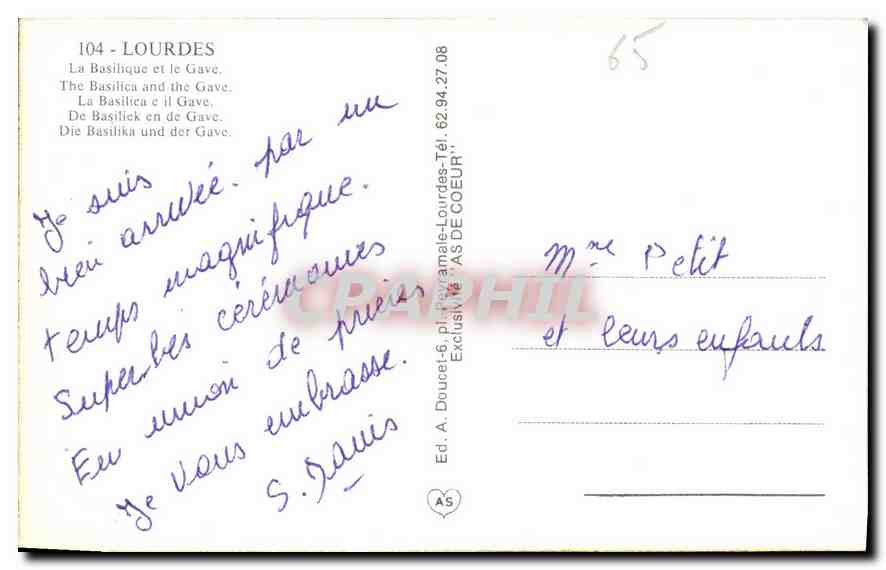 104 - LOURDES
La Basilique et le Gave.
The Basilica and the Gave.
La Basilica e il Gave.
De Basiliek en de Gave.
Die Basilika und der Gave.
Je suis
bien arrivée. par un
temps magnifique.
Superbes cérémonies
En union de prières
Je vous embrasse.
Ed. A. Doucet-6, pl. Peyramale-Lourdes-Tél. 62.94.27.08
Exclusivité "AS DE COEUR"
AS
65
Mme Petit
et leurs enfants
CPAPHIL